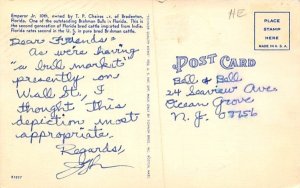 Emperor Jr. 10th, owned by T. P. Chaires Jr. of Bradenton,
Florida. One of the outstanding Brahman Bulls in Florida. This is
the second generation of Florida bred cattle imported from India.
Florida rates second in the U. S. in pure bred Brahman cattle.
Dear Friends:
As we're having
"a bull market"
presently on
Wall St., I
thought this
depiction most
appropriate.
Regards,
HE
PLACE
STAMP
HERE
MADE IN U.S.A.
POST CARD
Bell & Bell
24 Seaview Ave.
Ocean Grove
N. J. 07756